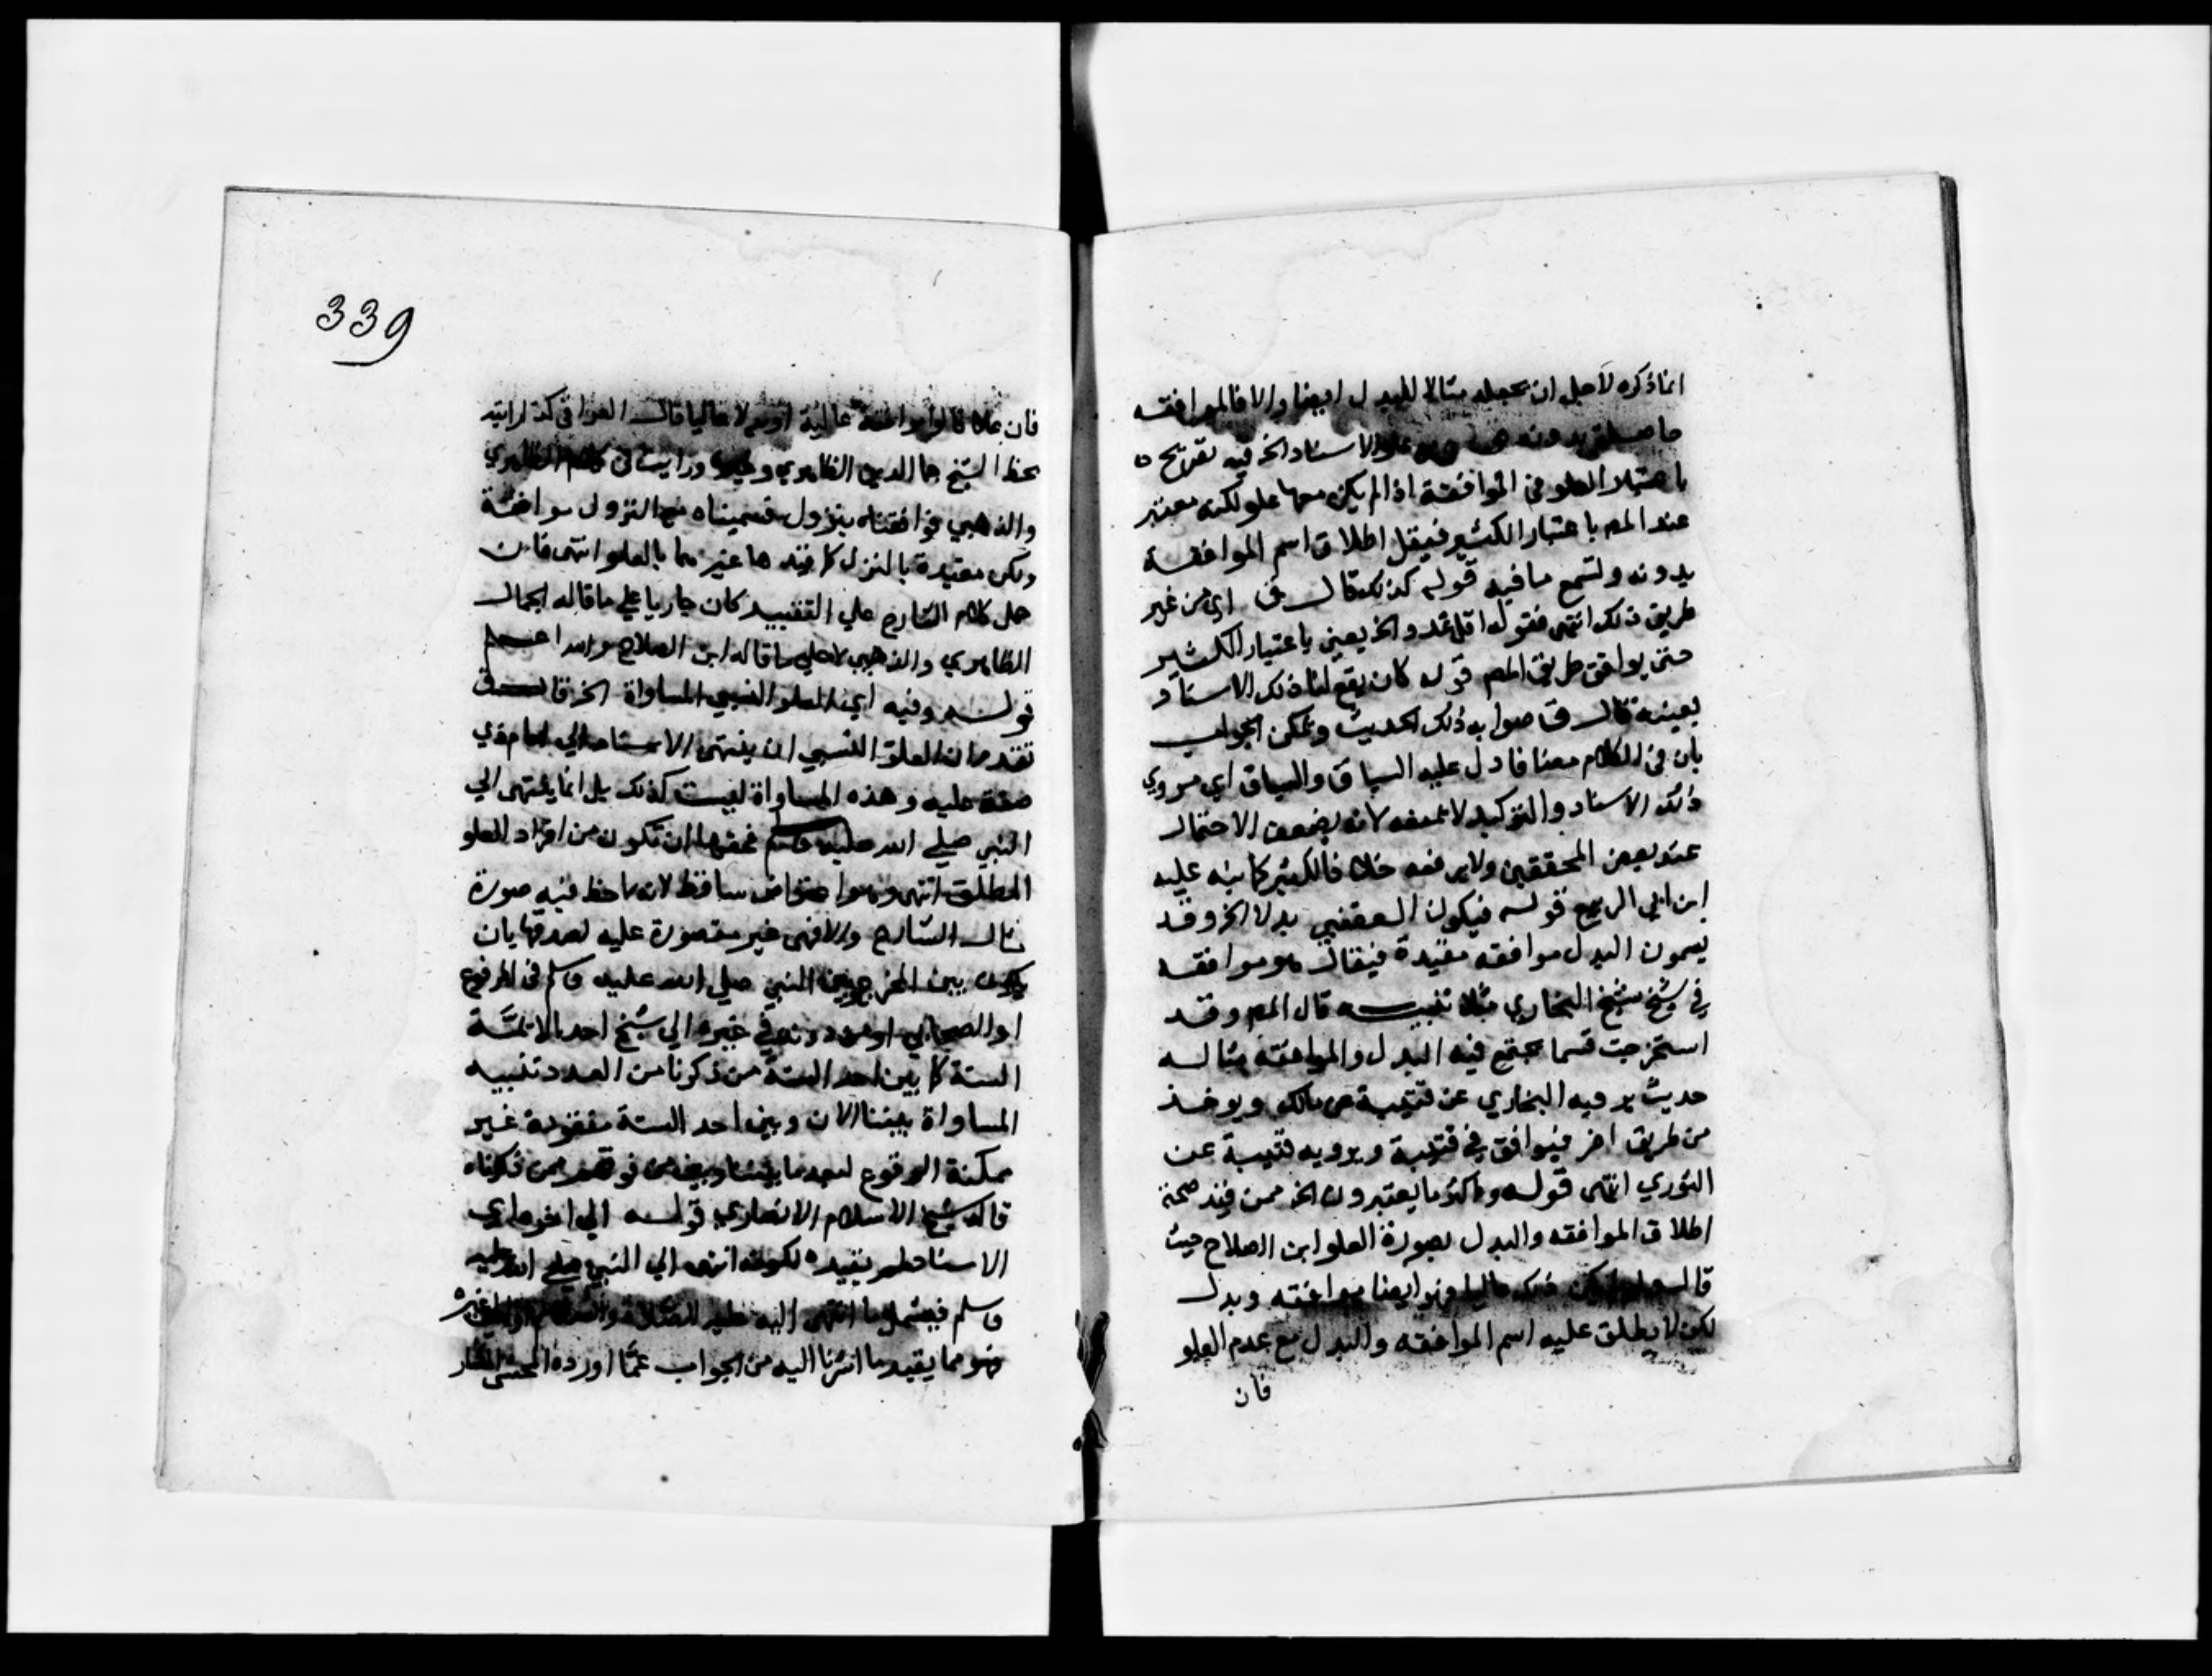 انما ذكره لاجل ان يجعله مثالا للبدل ايضا والا فالموافقه
ما حصلت بدونه علو الاسناد الخ فيه تصريح ه
باعتبار العلو في الموافقة اذا لم يكن معها علو لكنه معتبر
عند المص باعتبار الكثير فيقل اطلاق اسم الموافقة
بدونه ولتسمع ما فيه قوله كذلك قال ق اي من غير
طريق ذلك انتهى فقوله اقل عددا الخ يعني باعتبار الكثير
حتى يوافق طريق المص قوله كان يقع لنا ذلك الاسناد
بعينه قال ق صوابه ذلك الحديث ويمكن الجواب
بان في الكلام مضافا دل عليه السباق والسياق اي مروي
ذلك الاسناد والتوكيد لا يمنعه لانه يضعف الاحتمال
عند بعض المحققين ولا يرفعه خلافا لكثير كما نبه عليه
ابن ابي الربيع قوله فيكون القعنبي بدلا الخ وقد
يسمون البدل موافقه مقيدة فيقال هو موافقه
في شيخ شيخ البخاري مثلا تنبيه قال المص وقد
استخرجت قسما يجتمع فيه البدل والموافقة مثاله
حديث يرويه البخاري عن قتيبة عن مالك ويوخذ
من طريق اخر فيوافق في قتيبة ويرويه قتيبة عن
الثوري انتهى قوله واكثر ما يعتبرون الخ ممن قيد صحة
اطلاق الموافقه والبدل بصورة العلو ابن الصلاح حيث
قال ولو لم يكن ذلك عاليا فهو ايضا موافقه وبدل
لكن لا يطلق عليه اسم الموافقه والبدل مع عدم العلو
فان
339
فان علا قالوا موافقة عالية او بدلا عاليا قال العراقي كذا رايته
بخط الشيخ جمال الدين الظاهري وغيره ورايت في كلام الظاهري
والذهبي فوافقناه بنزول فسميناه مع النزول موافقة
ولكن مقيدة بالنزول كما قيدها غيرهما بالعلو انتهى فان
حمل كلام الشارح علي التقييد كان جاريا علي ما قاله الجمال
الظاهري والذهبي لا علي ما قاله ابن الصلاح والله اعلم
قوله وفيه اي العلو النسبي المساواة الخ قال ق
تقدم ان العلو النسبي ان ينتهى الاسناد الي امام ذي
صفة عليه وهذه المساواة ليست كذلك بل انما ينتهى الي
النبي صلي الله عليه وسلم فحقها ان تكون من افراد العلو
المطلق انتهى وهو اعتراض ساقط لانه لاحظ فيه صورة
مثال الشارح والا فهي غير مقصورة عليه لصدقها بان
يكون بين المخرج وبين النبي صلي الله عليه وسلم في المرفوع
او الصحابي او من دونه في غيره الي شيخ احد الايمة
الستة كما بين احد الستة من ذكرنا من العدد تنبيه
المساواة بيننا الان وبين احد الستة مفقودة غير
ممكنة الوقوع لبعد ما بيننا وبين من فوقهم ممن ذكرناه
قاله شيخ الاسلام الانصاري قوله الي اخره اي
الاسناد ولم يقيده بكونه انتهى الي النبي صلي الله عليه
وسلم فيشمل ما انتهى اليه عليه الصلاة والسلام او الي غيره
فهو مما يفيد ما اشرنا اليه من الجواب عمّا اورده المحشي